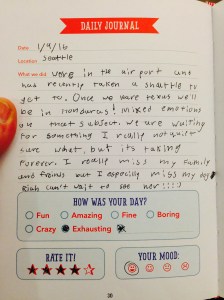 DAILY JOURNAL
Date: 1/4/16
Location: Seattle
What we did: were in the airport ant
has recently taken a shuttle to
get to. Once we were texat well
be in honduras! mixed emotions
on that subject. We are waiting
for something I really not quit
sure what, but its taking
forever. I really miss my family
and friends but I especially miss my dog
Riah can't wait to see her!!!:)
HOW WAS YOUR DAY?
Fun Amazing Fine Boring
Crazy Exhausting
RATE IT!
YOUR MOOD:
30